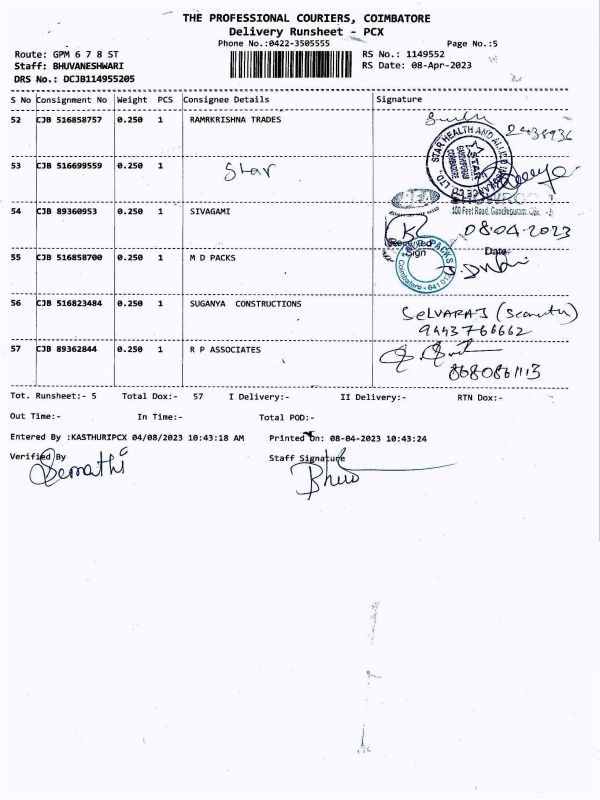 THE PROFESSIONAL COURIERS, COIMBATORE
Delivery Runsheet - PCX
Phone No.:0422-3505555 Page No.:5
Route: GPM 6 7 8 ST RS No.: 1149552
Staff: BHUVANESHWARI RS Date: 08-Apr-2023
DRS No.: DCJB114955205
S No Consignment No Weight PCS Consignee Details Signature
52 CJB 516858757 0.250 1 RAMRKRISHNA TRADES
STAR HEALTH AND
53 CJB 516699559 0.250 1 Star
100 Feet Road, Gandhipuram, Cbe.
54 CJB 89360953 0.250 1 SIVAGAMI
08.04.2023
Received Sign Date
55 CJB 516858700 0.250 1 M D PACKS
PACKS Coimbatore - 641 01
56 CJB 516823484 0.250 1 SUGANYA CONSTRUCTIONS
SELVARAJ
9443766662
57 CJB 89362844 0.250 1 R P ASSOCIATES
Tot. Runsheet:- 5 Total Dox:- 57 I Delivery:- II Delivery:- RTN Dox:-
Out Time:- In Time:- Total POD:-
Entered By :KASTHURIPCX 04/08/2023 10:43:18 AM Printed On: 08-04-2023 10:43:24
Verified By Staff Signature